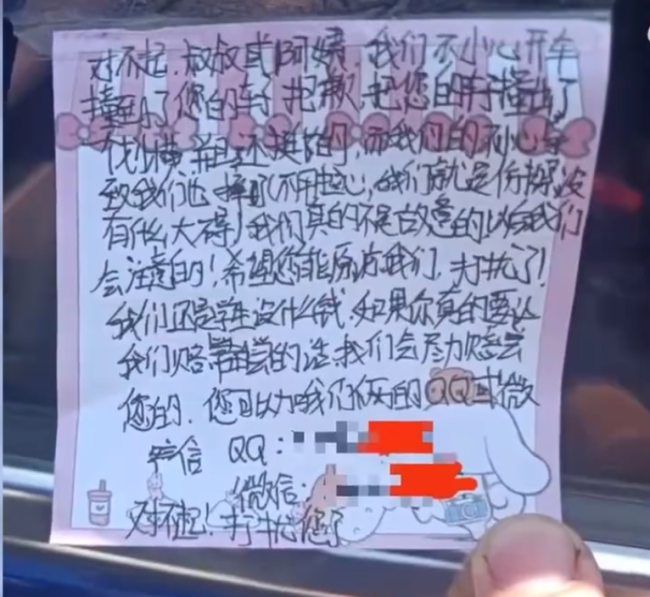 对不起，叔叔或阿姨，我们不小心开车
撞到了您的车，抱歉，把您的车撞出了
划横 还挺 的，而我们的不小心导
致我们也摔了(不用担心，我们就是 摔没
有什么大碍)我们真的不是故意的以后我们
会注意的！希望您能原谅我们，打扰了！
我们还是学生没什么钱，如果你真的要让
我们赔尝的话，我们会尽力赔尝
您的，您可以加我们俩的QQ或微
信 QQ：
微信：
对不起！打扰您了